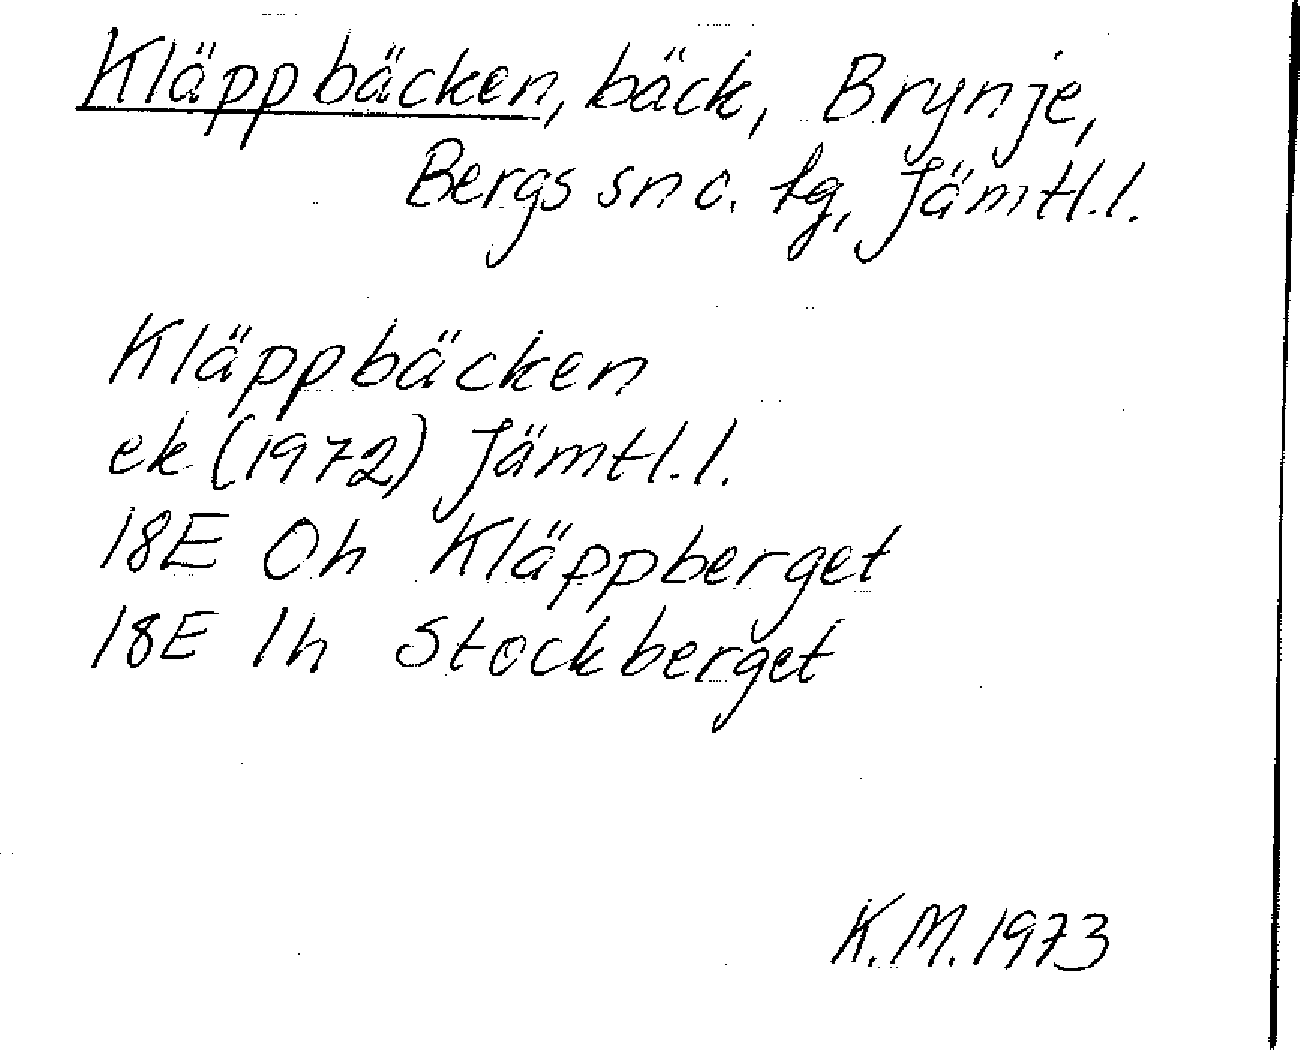 Kläppbäcken, bäck, Brynje,
Bergs sn o. tg, Jämtl.l.
Kläppbäcken
ek (1972) Jämtl.l.
18E 0h Kläppberget
18E 1h Stockberget
K.M. 1973